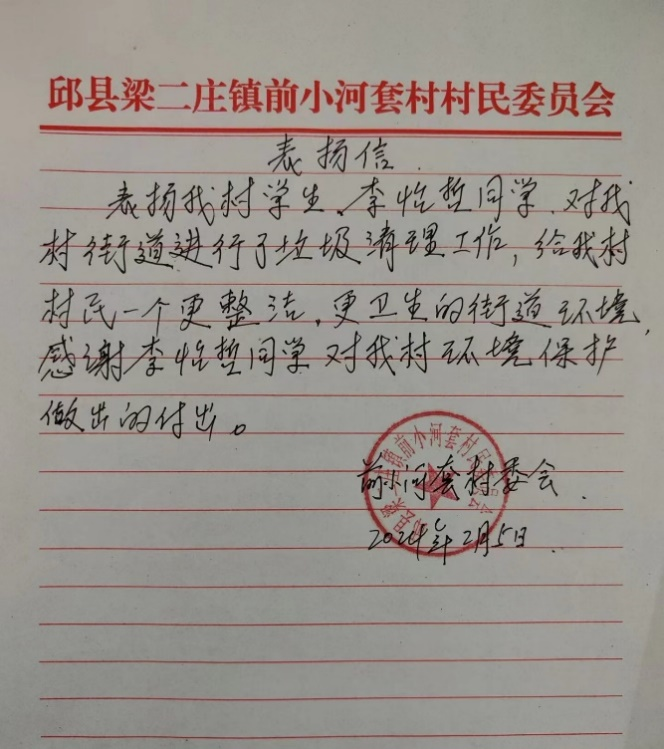 邱县梁二庄镇前小河套村村民委员会
表扬信.
表扬我村学生、李怡哲同学.对我
村街道进行了垃圾清理工作,给我村
村民一个更整洁,更卫生的街道环境,
感谢李怡哲同学对我村环境保护
做出的付出。
前小河套村委会.
2024年2月5日.